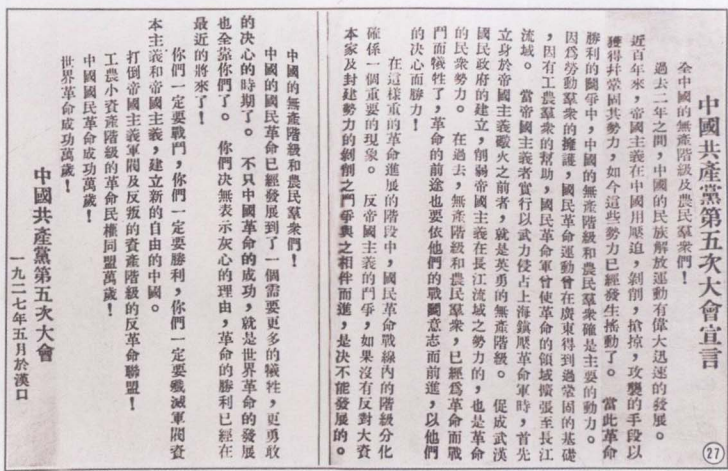 中國共產黨第五次大會宣言
全中國的無產階級及農民羣衆們！
過去二年之間，中國的民族解放運動有偉大迅速的發展。
近百年來，帝國主義在中國用壓迫，剝削，搶掠，攻襲的手段以
獲得幷鞏固其勢力，如今這些勢力已經發生搖動了。 當此革命
勝利的鬬爭中，中國的無產階級和農民羣衆確是主要的動力。
因爲勞動羣衆的擁護，國民革命運動曾在廣東得到過鞏固的基礎
，因有工農羣衆的幫助，國民革命軍曾使革命的領域擴張至長江
流域。 當帝國主義者實行以武力侵占上海鎮壓革命軍時，首先
立身於帝國主義礮火之前者，就是英勇的無產階級。 促成武漢
國民政府的建立，削弱帝國主義在長江流域之勢力的，也是革命
的民衆勢力。 在過去，無產階級和農民羣衆，已經爲革命而戰
鬥而犧牲了，革命的前途也要依他們的戰鬬意志而前進，以他們
的決心而勝力！
在這樣重的革命進展的階段中，國民革命戰線內的階級分化
確係一個重要的現象。 反帝國主義的鬥爭，如果沒有反對大資
本家及封建勢力的剝削之鬥爭與之相伴而進，是決不能發展的。
中國的無產階級和農民羣衆們！
中國的國民革命已經發展到了一個需要更多的犧牲，更勇敢
的決心的時期了。 不只中國革命的成功，就是世界革命的發展
也全靠你們了。 你們決無表示灰心的理由，革命的勝利已經在
最近的將來了！
你們一定要戰鬥，你們一定要勝利，你們一定要殲滅軍閥資
本主義和帝國主義，建立新的自由的中國。
打倒帝國主義軍閥及反叛的資產階級的反革命聯盟！
工農小資產階級的革命民權同盟萬歲！
中國國民革命成功萬歲！
世界革命成功萬歲！
中國共產黨第五次大會
一九二七年五月於漢口
27